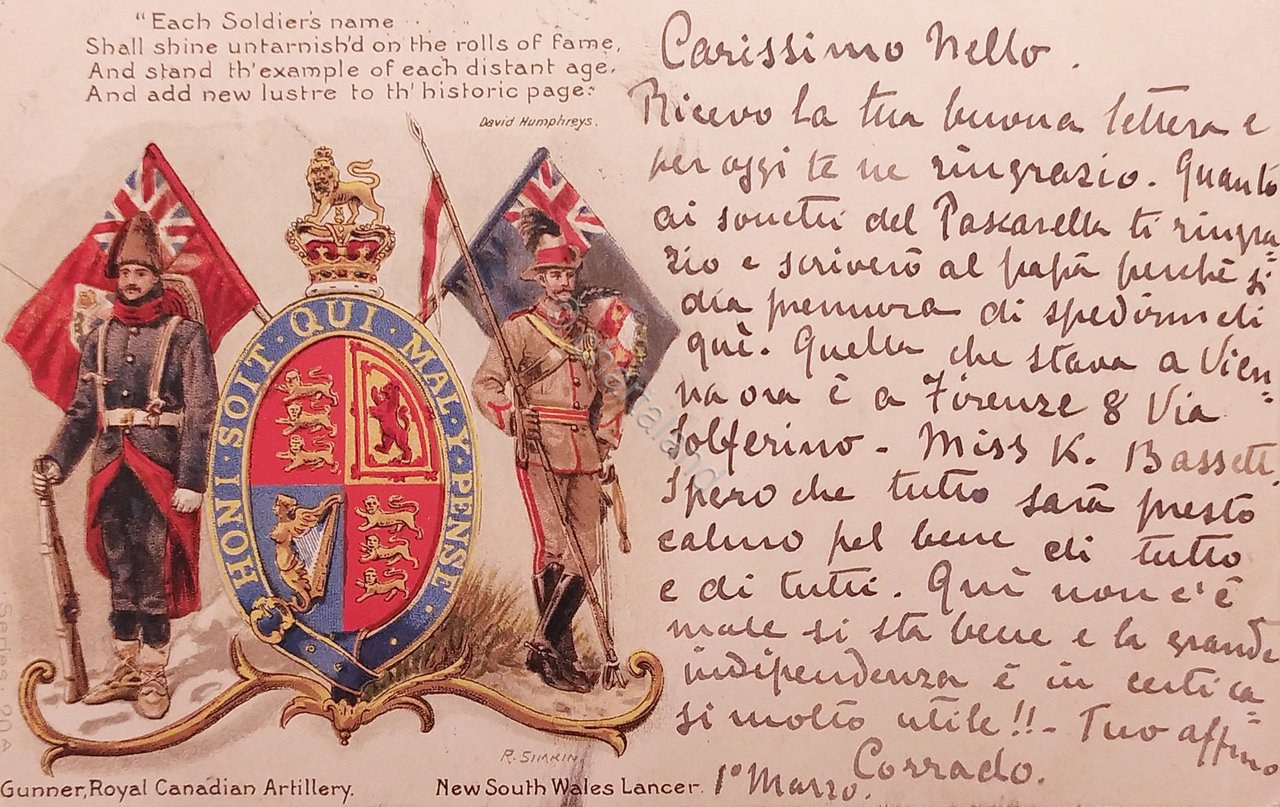 "Each Soldier's name
Shall shine untarnish'd on the rolls of fame,
And stand th' example of each distant age,
And add new lustre to th' historic page."
David Humphreys.
HONI · SOIT · QUI · MAL · Y · PENSE
R. SIMKIN.
Series: 20A
Gunner, Royal Canadian Artillery.
New South Wales Lancer.
Carissimo Nello.
Ricevo la tua buona lettera e
per oggi te ne ringrazio. Quanto
ai sonetti del Pascarella ti ringra=
zio e scriverò al papà perchè si
dia premura di spedirmeli
quì. Quella che stava a Vien=
na ora è a Firenze 8 Via
Solferino - Miss K. Bassett.
Spero che tutto sarà presto
calmo pel bene di tutto
e di tutti. Quì non c'è
male si sta bene e la grande
indipendenza è in certi ca=
si molto utile!! - Tuo affmo
Corrado.
1° Marzo.